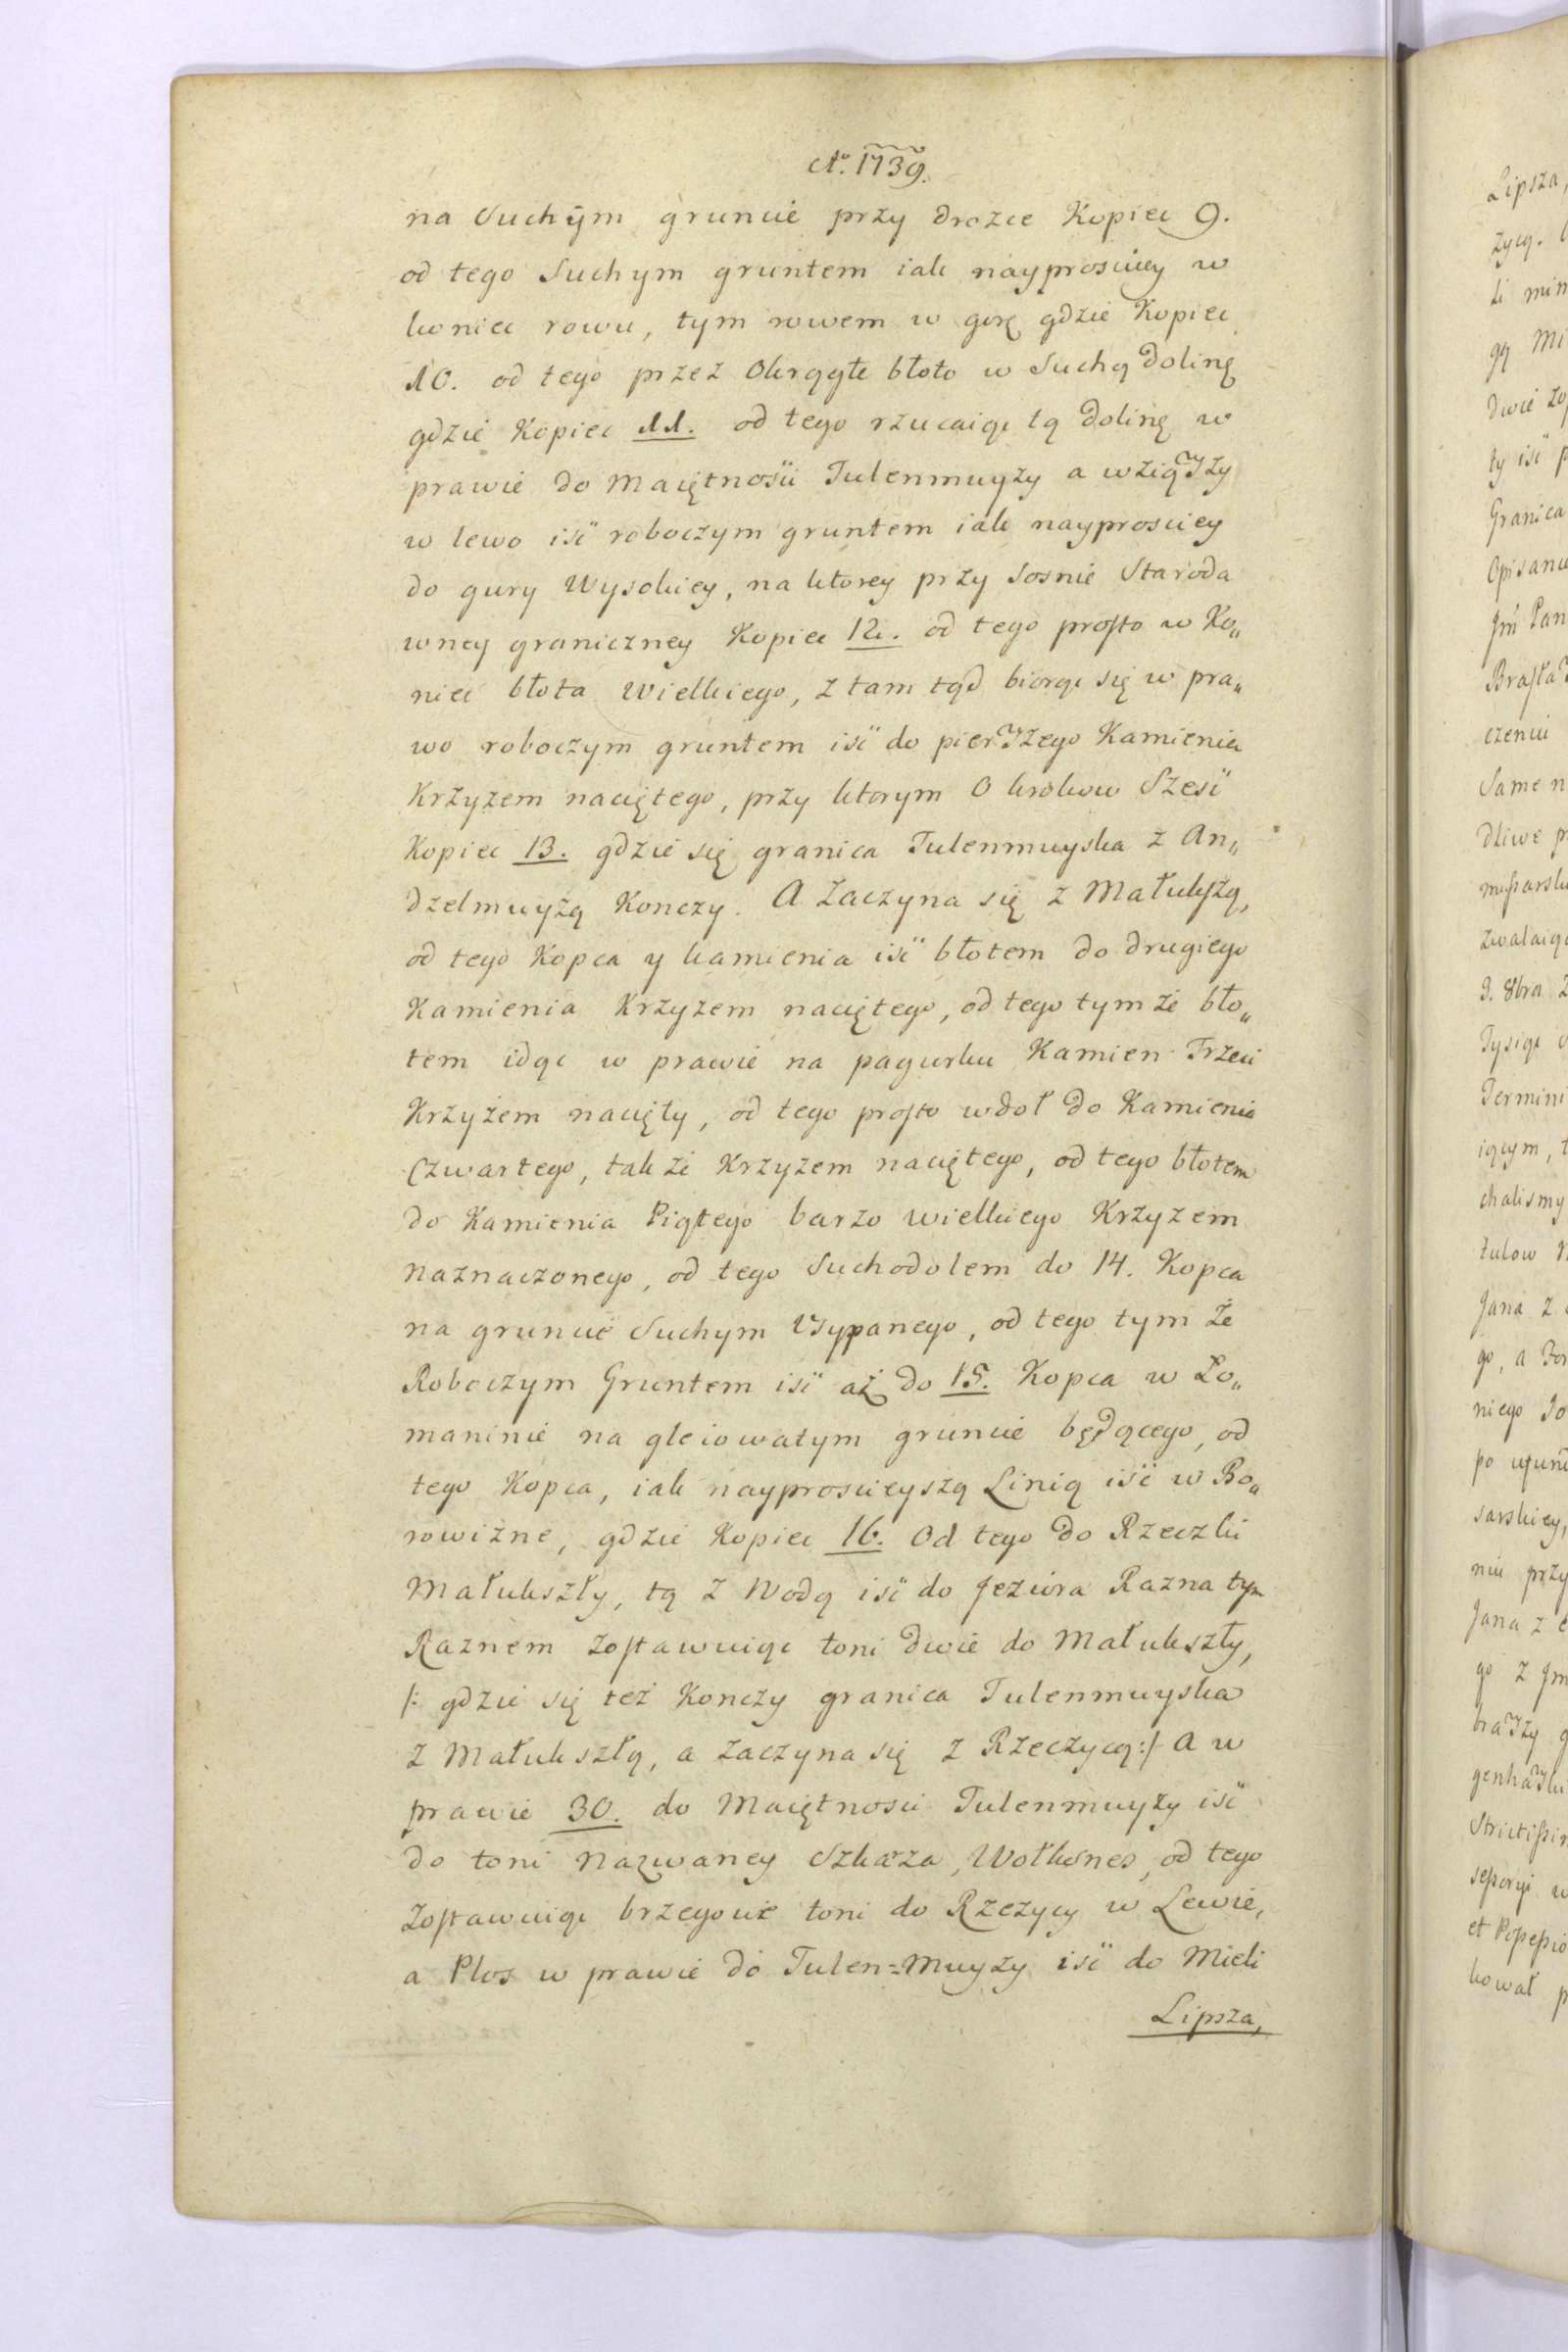 Aº. 1739.
na Suchym gruncie przy drozce Kopiec 9.
od tego Suchym gruntem iak nayprosciey w
koniec rowu, tym rowem w gorę gdzie Kopiec
10. od tego przez Okrągłe błoto w Suchą dolinę
gdzie Kopiec 11. od tego rzucaiąc tą dolinę w
prawie do Maiętnosci Tulenmuyzy a wziąwszy
w lewo isć roboczym gruntem iak nayprosciey
do gury Wysokiey, na ktorey przy Sosnie Staroda
wney graniczney Kopiec 12. od tego prosto w Ko„
niec błota Wielkiego, z tam tąd biorąc się w pra„
wo roboczym gruntem isć do pierszego Kamienia
Krzyzem naciętego, przy ktorym O krokow Szesć
Kopiec 13. gdzie się granica Tulenmuyska z An„
dzelmuyżą Konczy. A Zaczyna się z Małukszą,
od tego Kopca y kamienia isć błotem do drugiego
Kamienia Krzyzem naciętego, od tego tym że bło„
tem idąc w prawie na pagurku Kamien Trzeci
Krzyżem nacięty, od tego prosto wdoł do Kamienia
Czwartego, tak że Krzyzem naciętego, od tego błotem
do Kamienia Piątego barzo wielkiego Krzyzem
naznaczonego, od tego Suchodolem do 14. Kopca
na gruncie Suchym Usypanego, od tego tym że
Roboczym Gruntem isć aż do 15. Kopca w Ło„
maninie na gleiowatym gruncie będącego, od
tego Kopca, iak nayproscieyszą Linią iść w Bo„
rowizne, gdzie Kopiec 16. Od tego do Rzeczki
Małukszły, tą z Wodą isć do Jeziora Razna tym
Raznem Zostawuiąc toni dwie do Małukszły,
/: gdzie się też Konczy granica Tulenmuyska
z Małukszłą, a zaczyna się z Rzeczycą :/ A w
prawie 30. do Maiętnosci Tulenmuyży isć
do toni nazwaney Szkarza, Wołksnes, od tego
Zostawuiąc brzegowe toni do Rzezycy w Lewie,
a Plos w prawie do Tulen=Muyzy isć do Mieli
Lipsza,